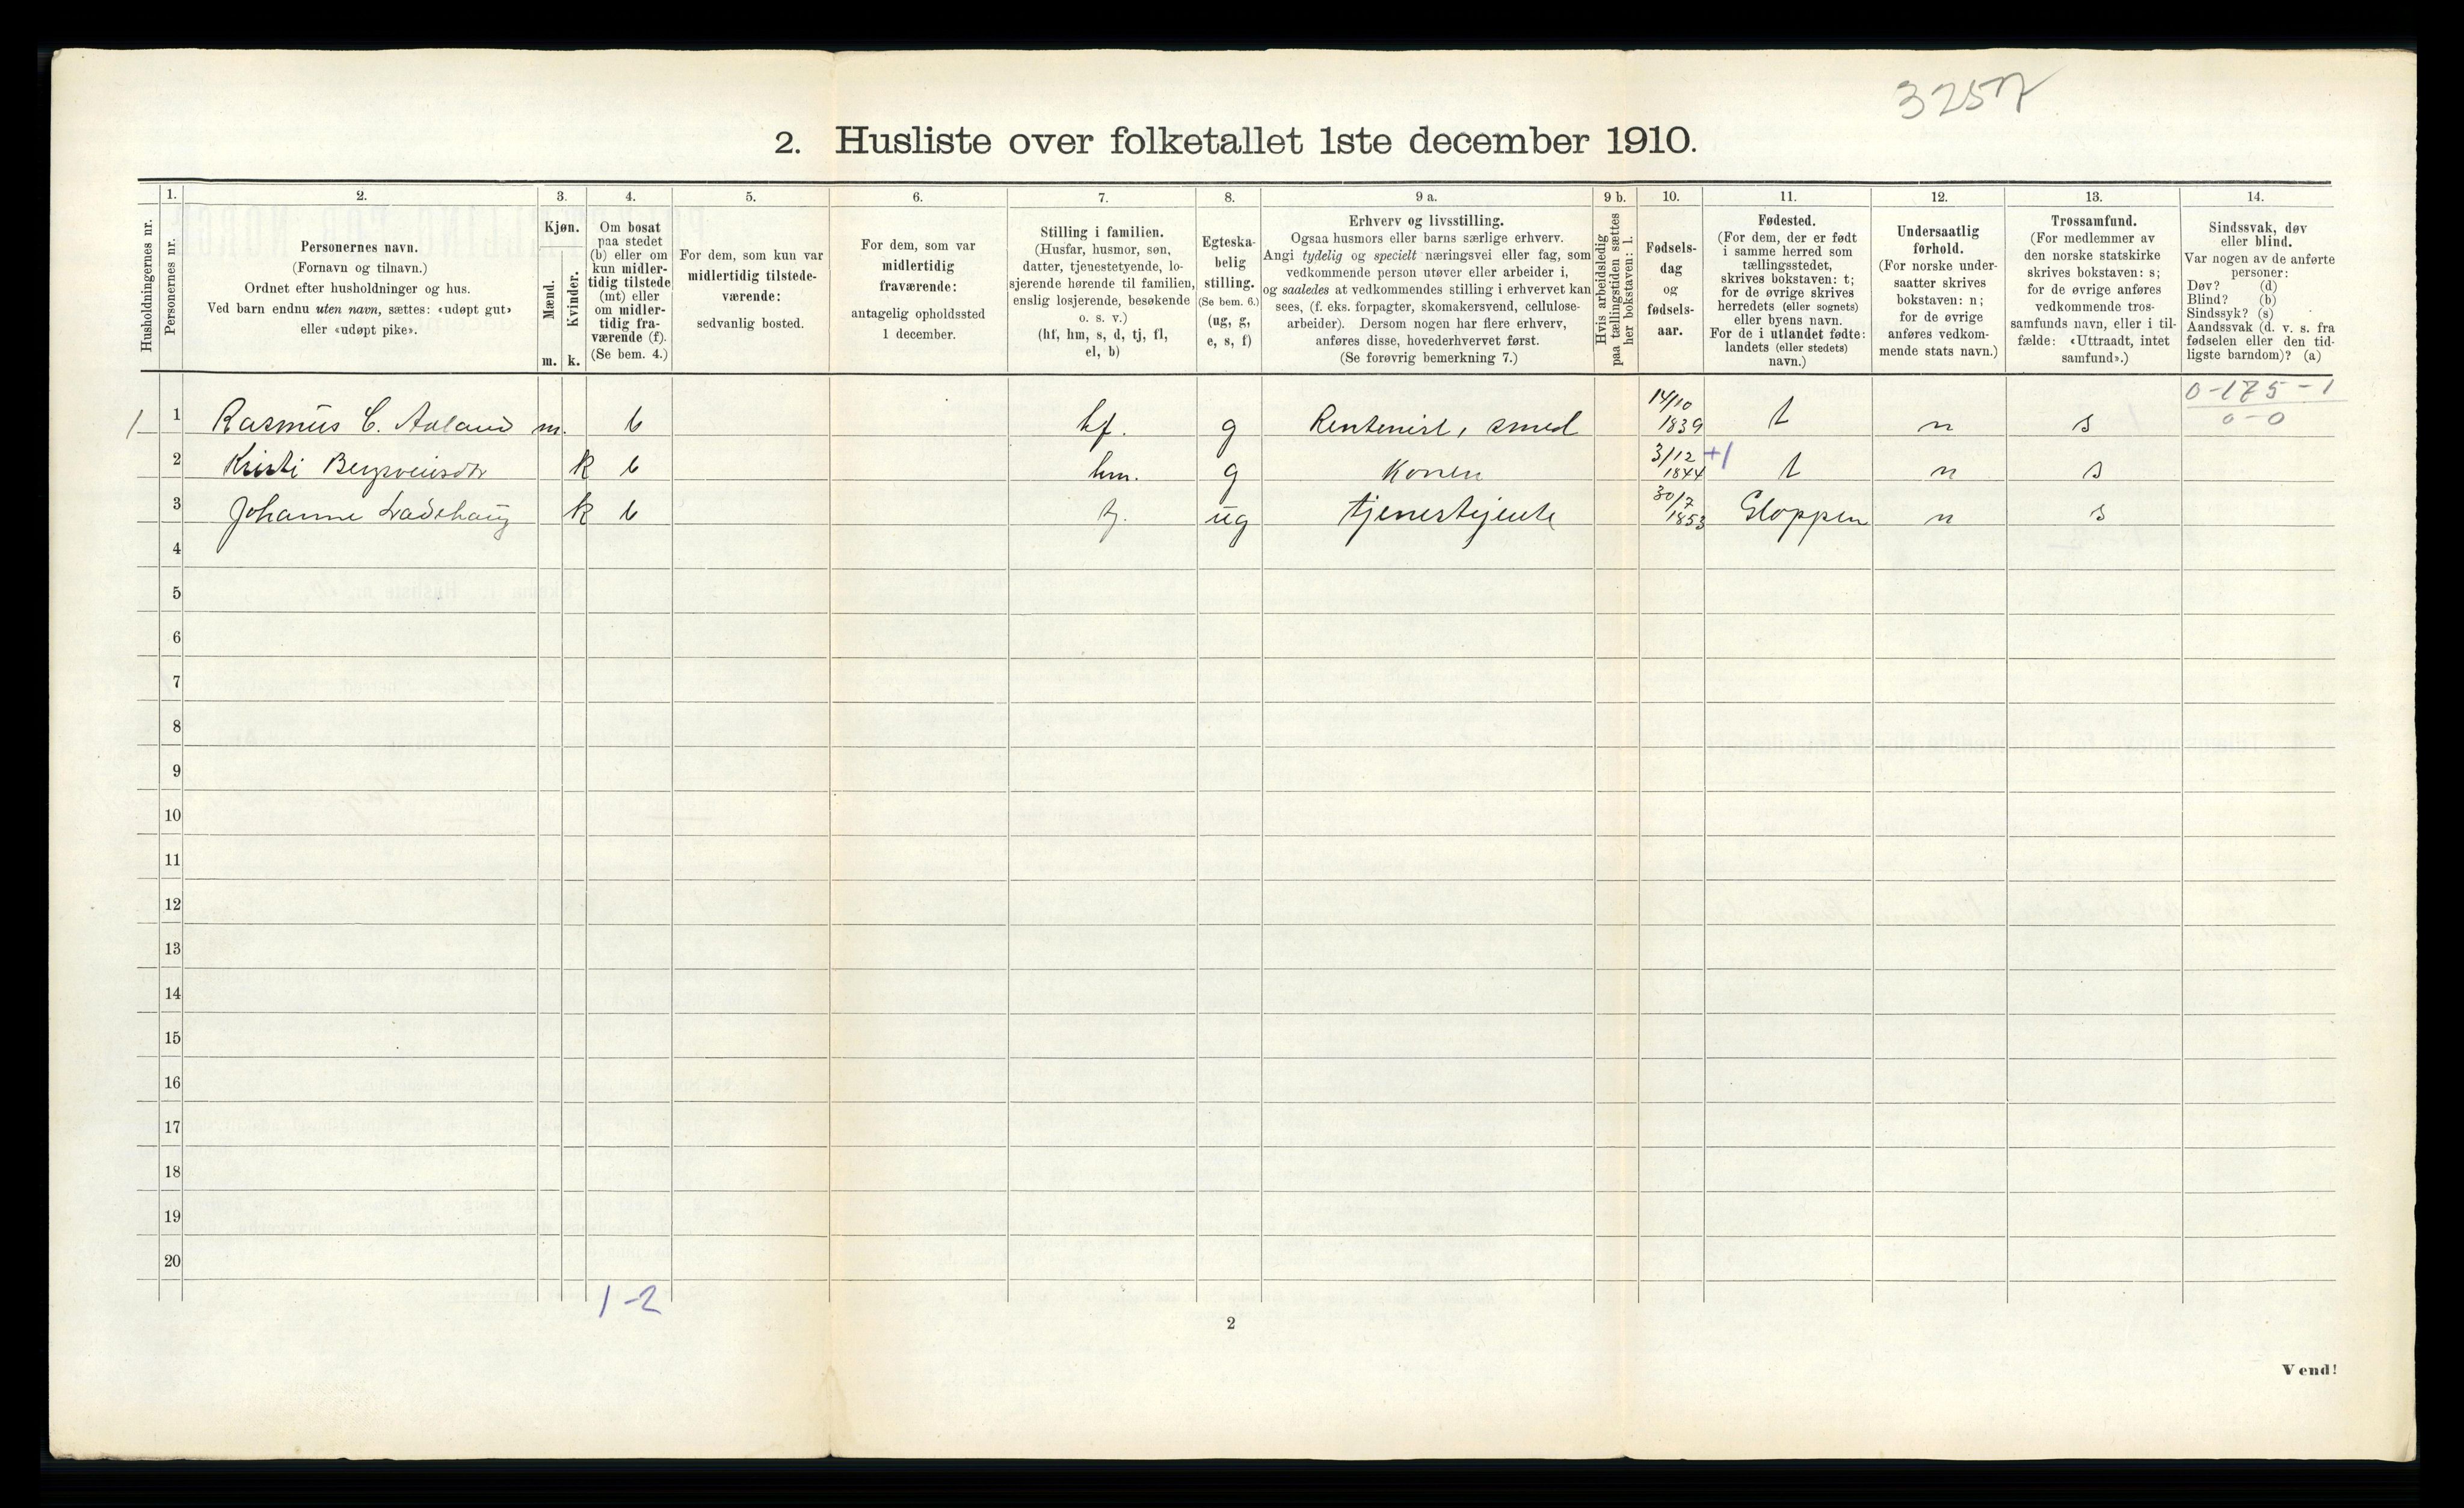 3257
2. Husliste over folketallet 1ste december 1910.
Husholdningernes nr.
1.
Personernes nr.
2.
Personernes navn.
(Fornavn og tilnavn.)
Ordnet efter husholdninger og hus.
Ved barn endnu uten navn, sættes: «udøpt gut»
eller «udøpt pike».
3.
Kjøn.
Mænd.
m.
Kvinder.
k.
4.
Om bosat
paa stedet
(b) eller om
kun midler-
tidig tilstede
(mt) eller
om midler-
tidig fra-
værende (f).
(Se bem. 4.)
5.
For dem, som kun var
midlertidig tilstede-
værende:
sedvanlig bosted.
6.
For dem, som var
midlertidig
fraværende:
antagelig opholdssted
1 december.
7.
Stilling i familien.
(Husfar, husmor, søn,
datter, tjenestetyende, lo-
sjerende hørende til familien,
enslig losjerende, besøkende
o. s. v.)
(hf, hm, s, d, tj, fl,
el, b)
8.
Egteska-
belig
stilling.
(Se bem. 6.)
(ug, g,
e, s, f)
9 a.
Erhverv og livsstilling.
Ogsaa husmors eller barns særlige erhverv.
Angi tydelig og specielt næringsvei eller fag, som
vedkommende person utøver eller arbeider i,
og saaledes at vedkommendes stilling i erhvervet kan
sees, (f. eks. forpagter, skomakersvend, cellulose-
arbeider). Dersom nogen har flere erhverv,
anføres disse, hovederhvervet først.
(Se forøvrig bemerkning 7.)
9 b.
Hvis arbeidsledig
paa tællingstiden sættes
her bokstaven: l.
10.
Fødsels-
dag
og
fødsels-
aar.
11.
Fødested.
(For dem, der er født
i samme herred som
tællingsstedet,
skrives bokstaven: t;
for de øvrige skrives
herredets (eller sognets)
eller byens navn.
For de i utlandet fødte:
landets (eller stedets)
navn.)
12.
Undersaatlig
forhold.
(For norske under-
saatter skrives
bokstaven: n;
for de øvrige
anføres vedkom-
mende stats navn.)
13.
Trossamfund.
(For medlemmer av
den norske statskirke
skrives bokstaven: s;
for de øvrige anføres
vedkommende tros-
samfunds navn, eller i til-
fælde: «Uttraadt, intet
samfund».)
14.
Sindssvak, døv
eller blind.
Var nogen av de anførte
personer:
Døv? (d)
Blind? (b)
Sindssyk? (s)
Aandssvak (d. v. s. fra
fødselen eller den tid-
ligste barndom)? (a)
0-175-1
0-0
1 1 Rasmus C. Aaland m. b hf. g Rentenist, smed 14/10 1839 t n s
2 Kristi k b hm. g Konen 3/12 1844 +1 t n s
3 Johanne k b tj. ug tjenestejente 30/7 1853 Gloppen n s
4
5
6
7
8
9
10
11
12
13
14
15
16
17
18
19
20
1-2
2
Vend!